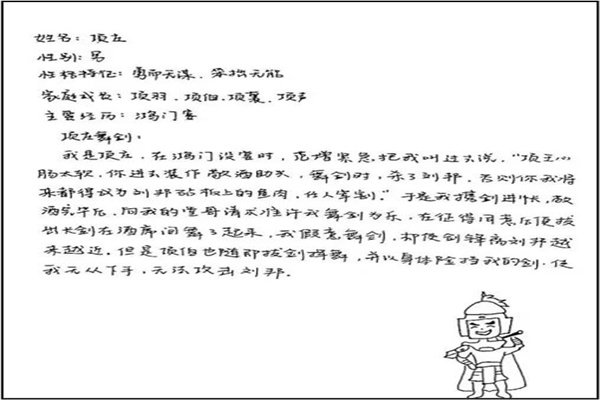 姓名：项庄
性别：男
性格特征：勇而无谋、笨拙无能
家庭成员：项羽、项伯、项襄、项声
主要经历：鸿门宴
项庄舞剑：
我是项庄，在鸿门设宴时，范增紧急把我叫过去说，“项王心
肠太软，你进去装作敬酒助头，舞剑时，杀了刘邦，否则你我将
来都得成为刘邦砧板上的鱼肉，任人宰割。”于是我携剑进帐，敬
酒完毕后，向我的堂哥请求准许我舞剑为乐，在征得同意后便拔
出长剑在酒席间舞了起来，我假意舞剑，却使剑锋离刘邦越
来越近，但是项伯也随即拔剑起舞，并以身体阻挡我的剑，使
我无从下手，无法攻击刘邦。